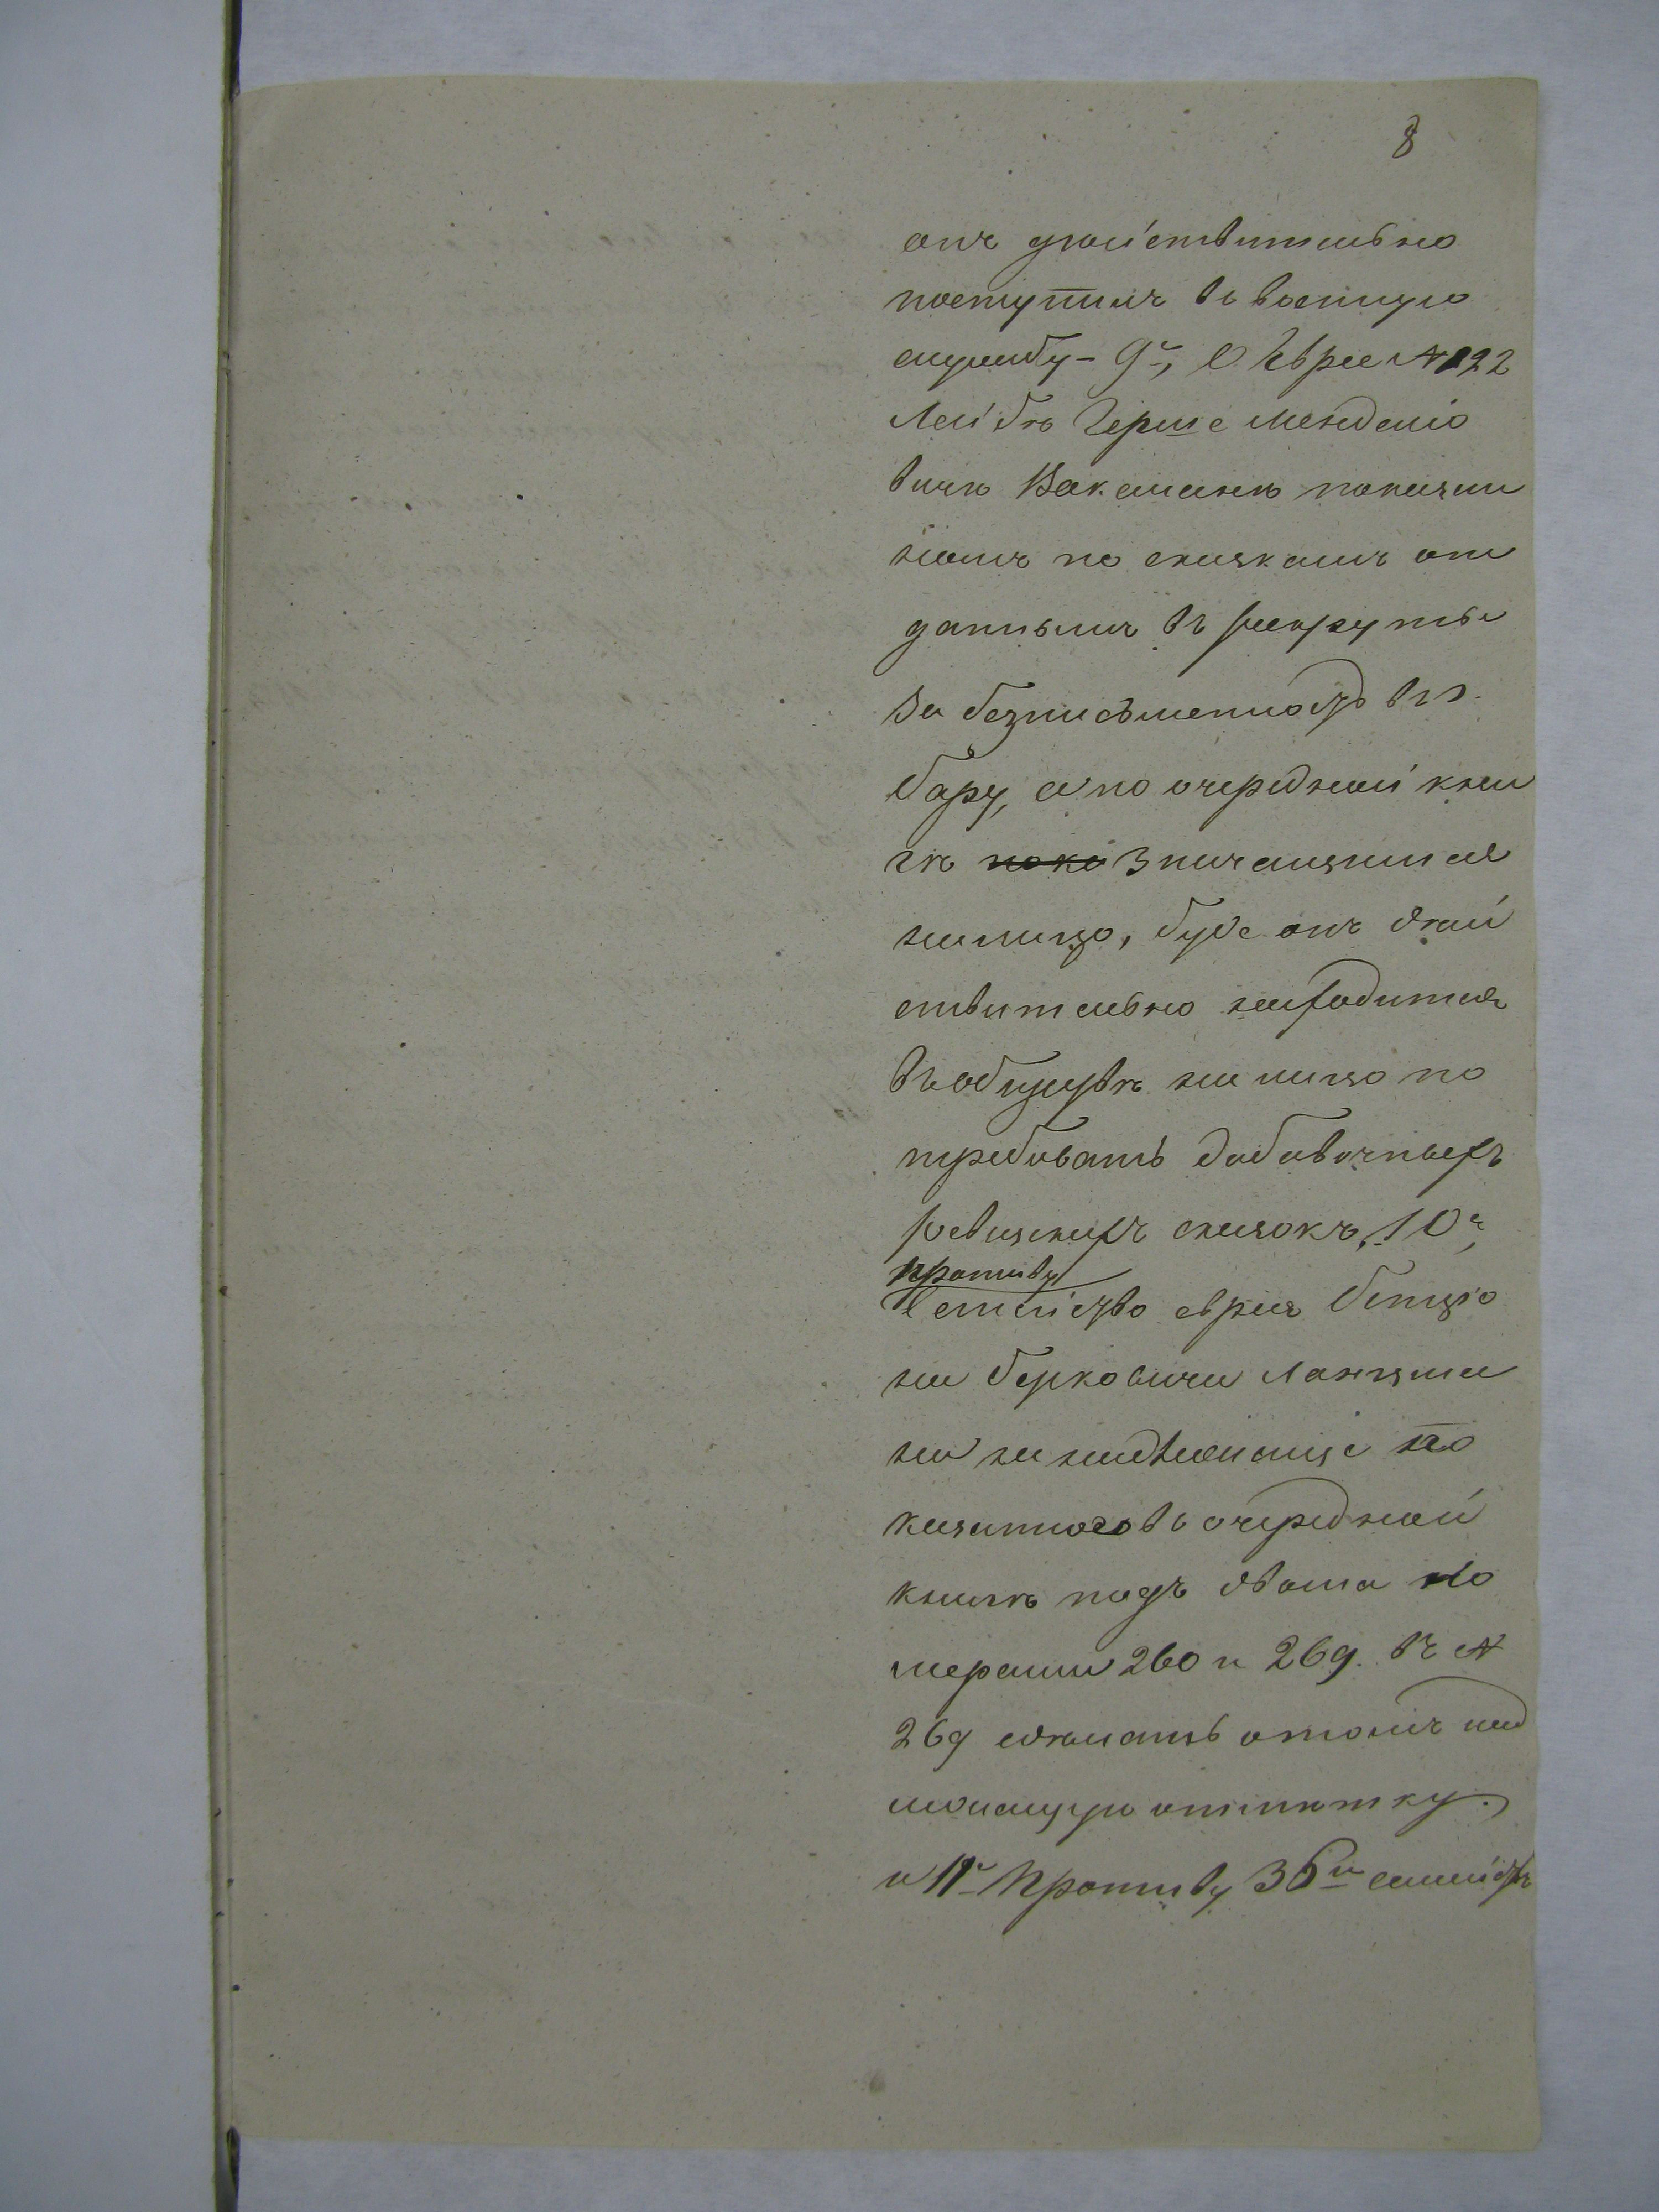 8
онъ дѣйствительно
поступилъ въ военную
службу – 9е, О Евреѣ № 122
Лейбѣ Герше Менделіо
вичѣ Ваксманѣ показан
номъ по сказкамъ от
даннымъ въ рекруты
За безписьменность въ г.
Бару, а по очередной кни
гѣ поко значащимся
на лицо, буде онъ дѣй
ствительно находится
въ обществѣ на лицо по
требовать добавочныхъ
ревизскихъ сказокъ, 10е,
Противу
Семейство еврея Бенціо
на Берковича Ланцма
на не надлежаще по
казанного въ очередной
книгѣ подъ двома но
мерами 260 и 269. въ №
269 сдѣлать о томъ над
лежащую отмѣтку.
и 11е Противу 36и семействъ